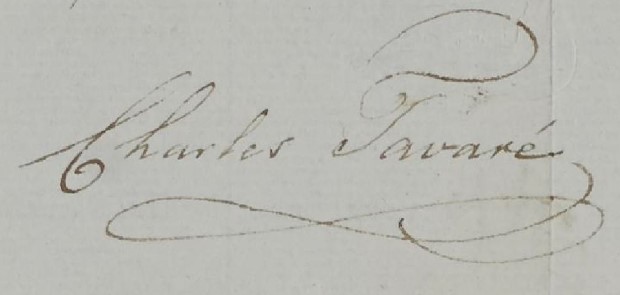 Charles Tavaré